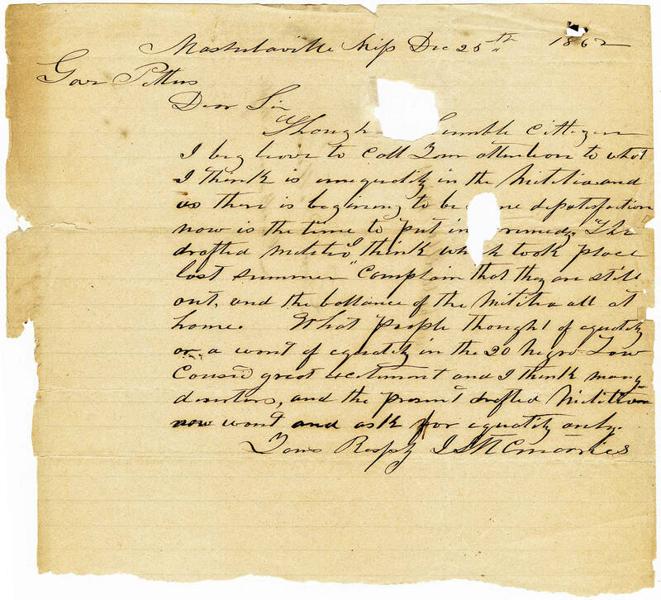 Mashulaville Miss Dec 25th 1862
Gov Pettus
Dear Sir
Though humble Cittizen
I beg leave to Call Your attention to what
I think is unequality in the Militia and
as there is begining to be some disatisfaction
now is the time to put in remedy. The
drafted militia I think which took place
last summer Complain that they are still
out, and the ballance of the Militia all at
home. What people thought of equality
or a want of equality in the 20 negro Law
Caused great excitement and I think many
deserters, and the present drafted Militia
now want and ask for equality only.
Yours Respty